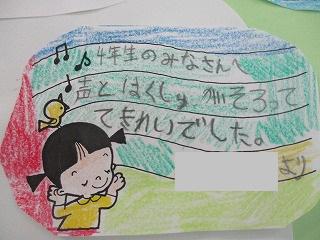 4年生のみなさんへ
声とはくしゅがそろって
てきれいでした。
より